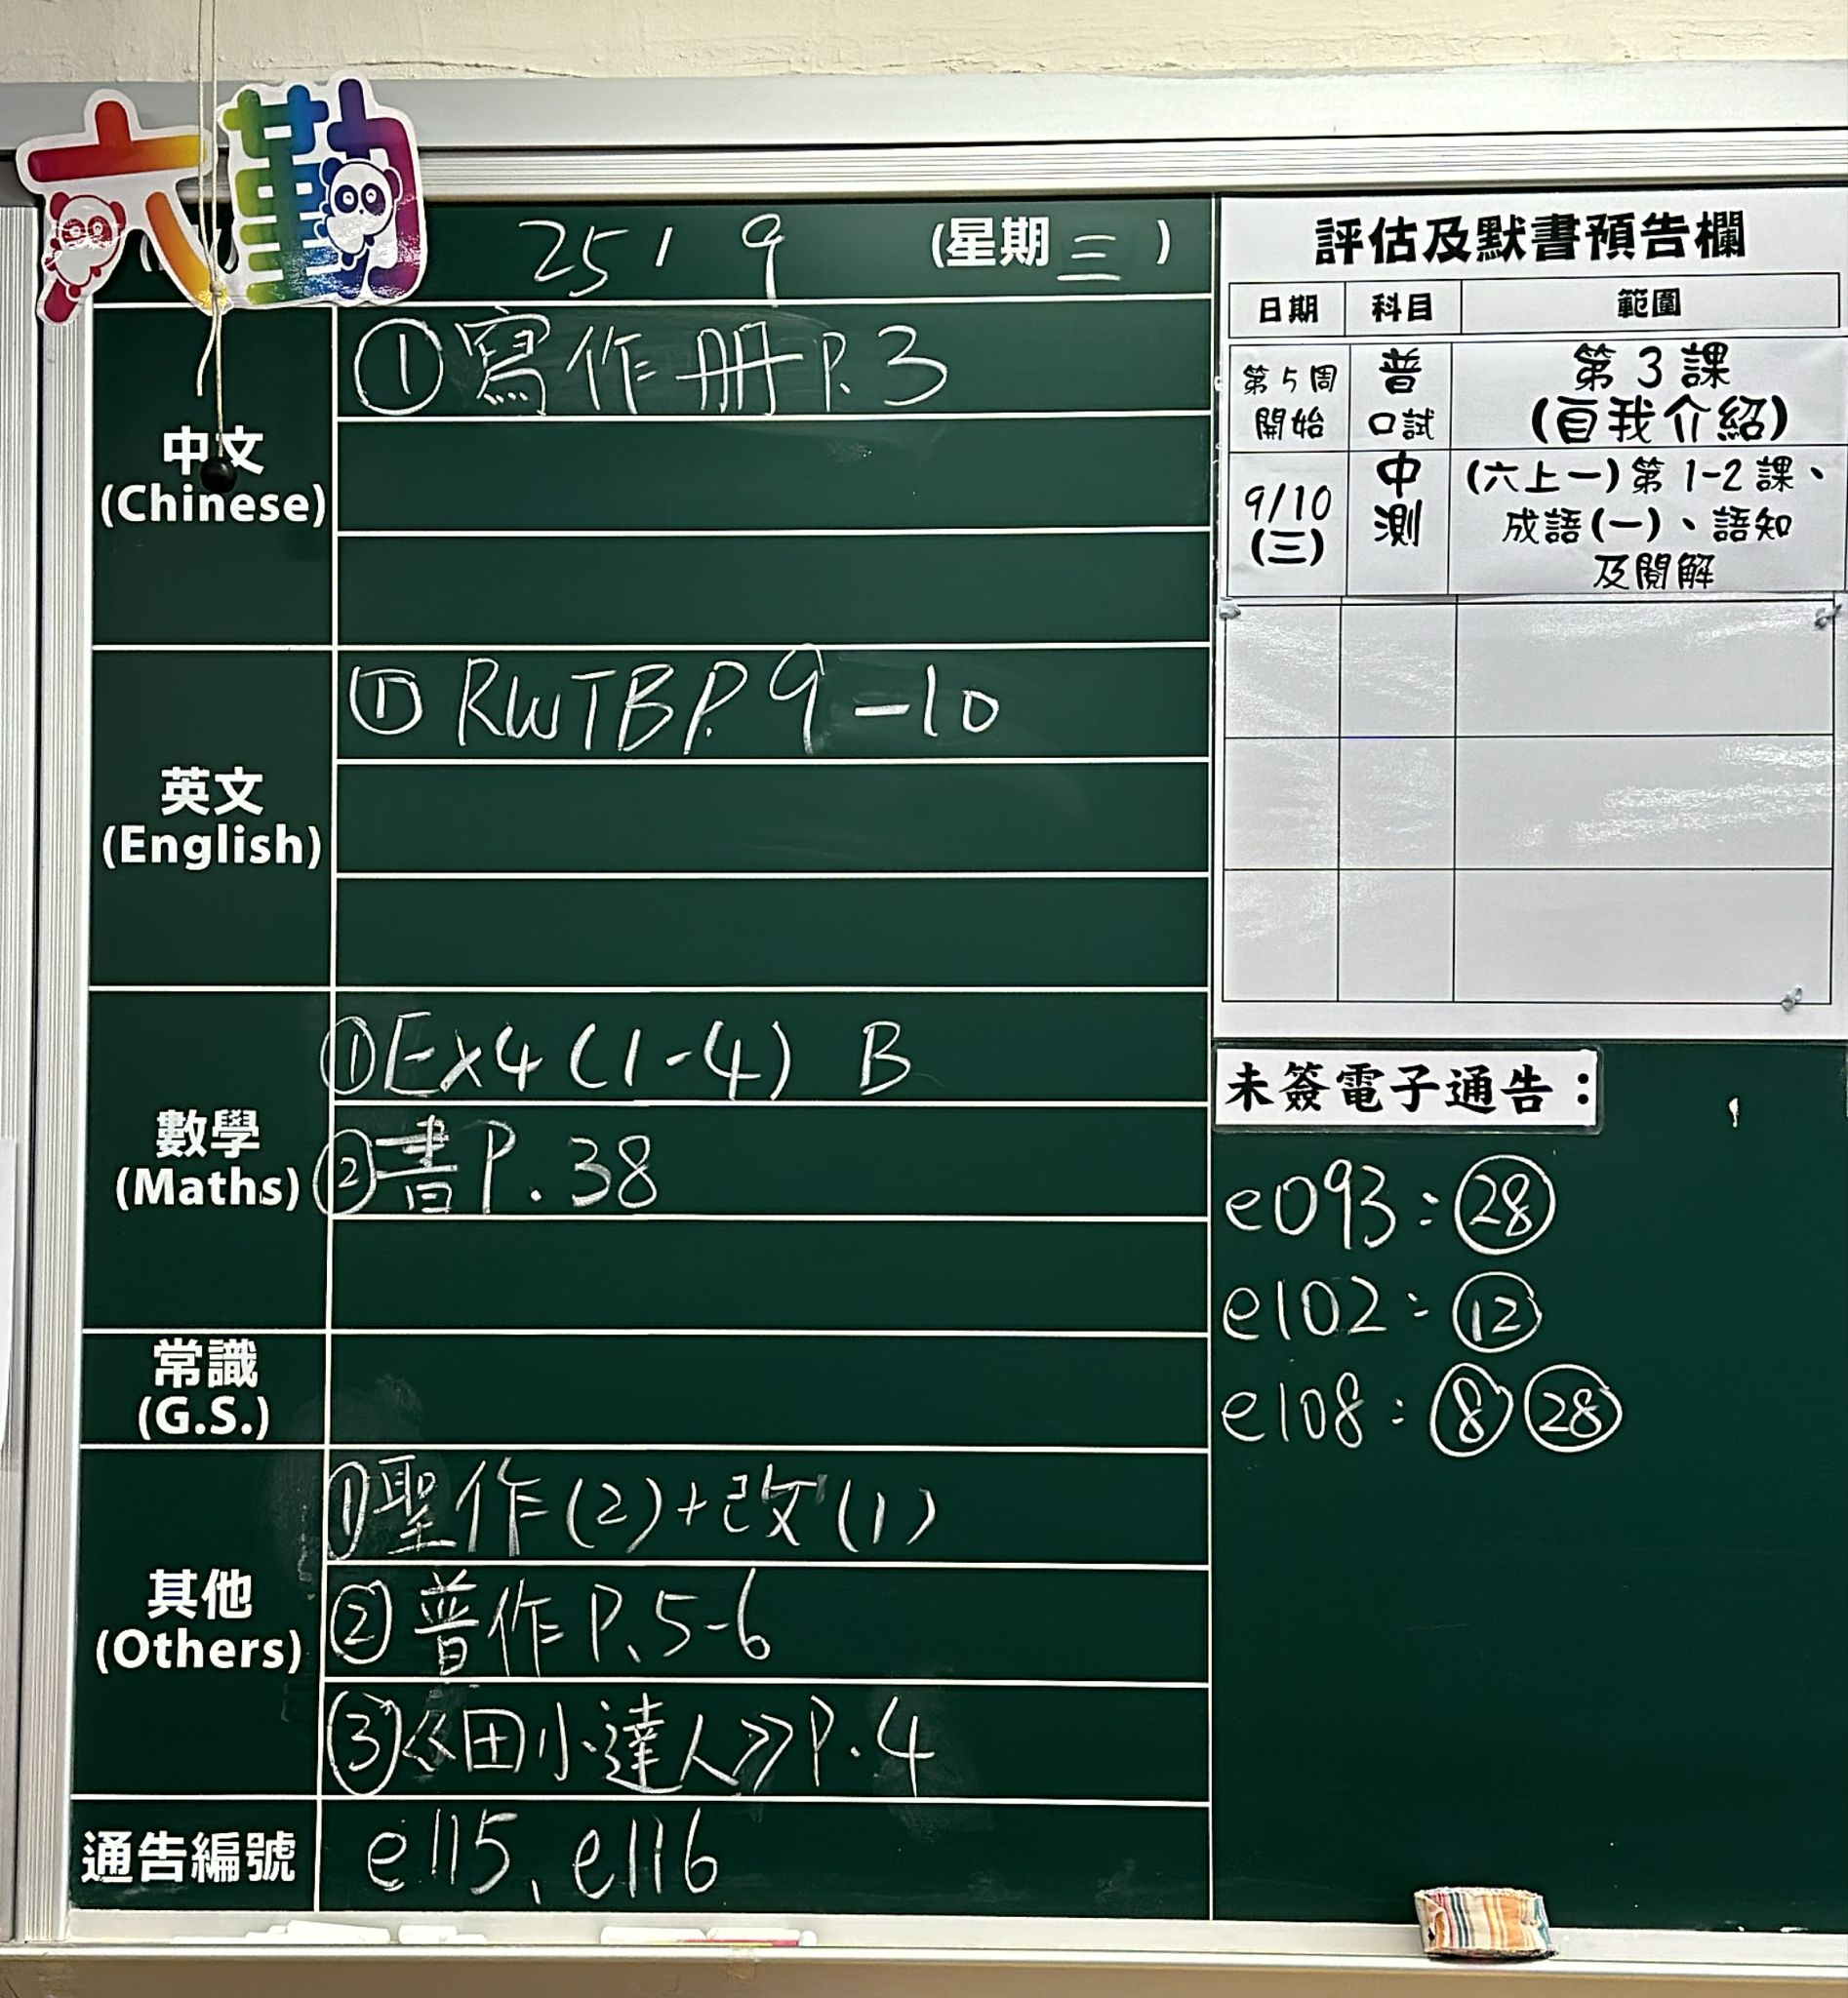 六勤
25 / 9 (星期三)
中文
(Chinese)
①寫作冊P.3
英文
(English)
① RWTB P.9-10
數學
(Maths)
①Ex4 (1-4) B
②書P.38
常識
(G.S.)
其他
(Others)
①聖作(2)+改(1)
②普作P.5-6
③《田小達人》P.4
通告編號
e115、e116
評估及默書預告欄
日期 科目 範圍
第5周
開始
普
口試
第3課
(自我介紹)
9/10
(三)
中
測
(六上一)第1-2課、
成語(一)、語知
及閱解
未簽電子通告：
e093:㉘
e102:⑫
e108:⑧㉘